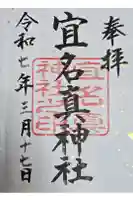 奉拝
宜名真神社
令和七年三月十七日